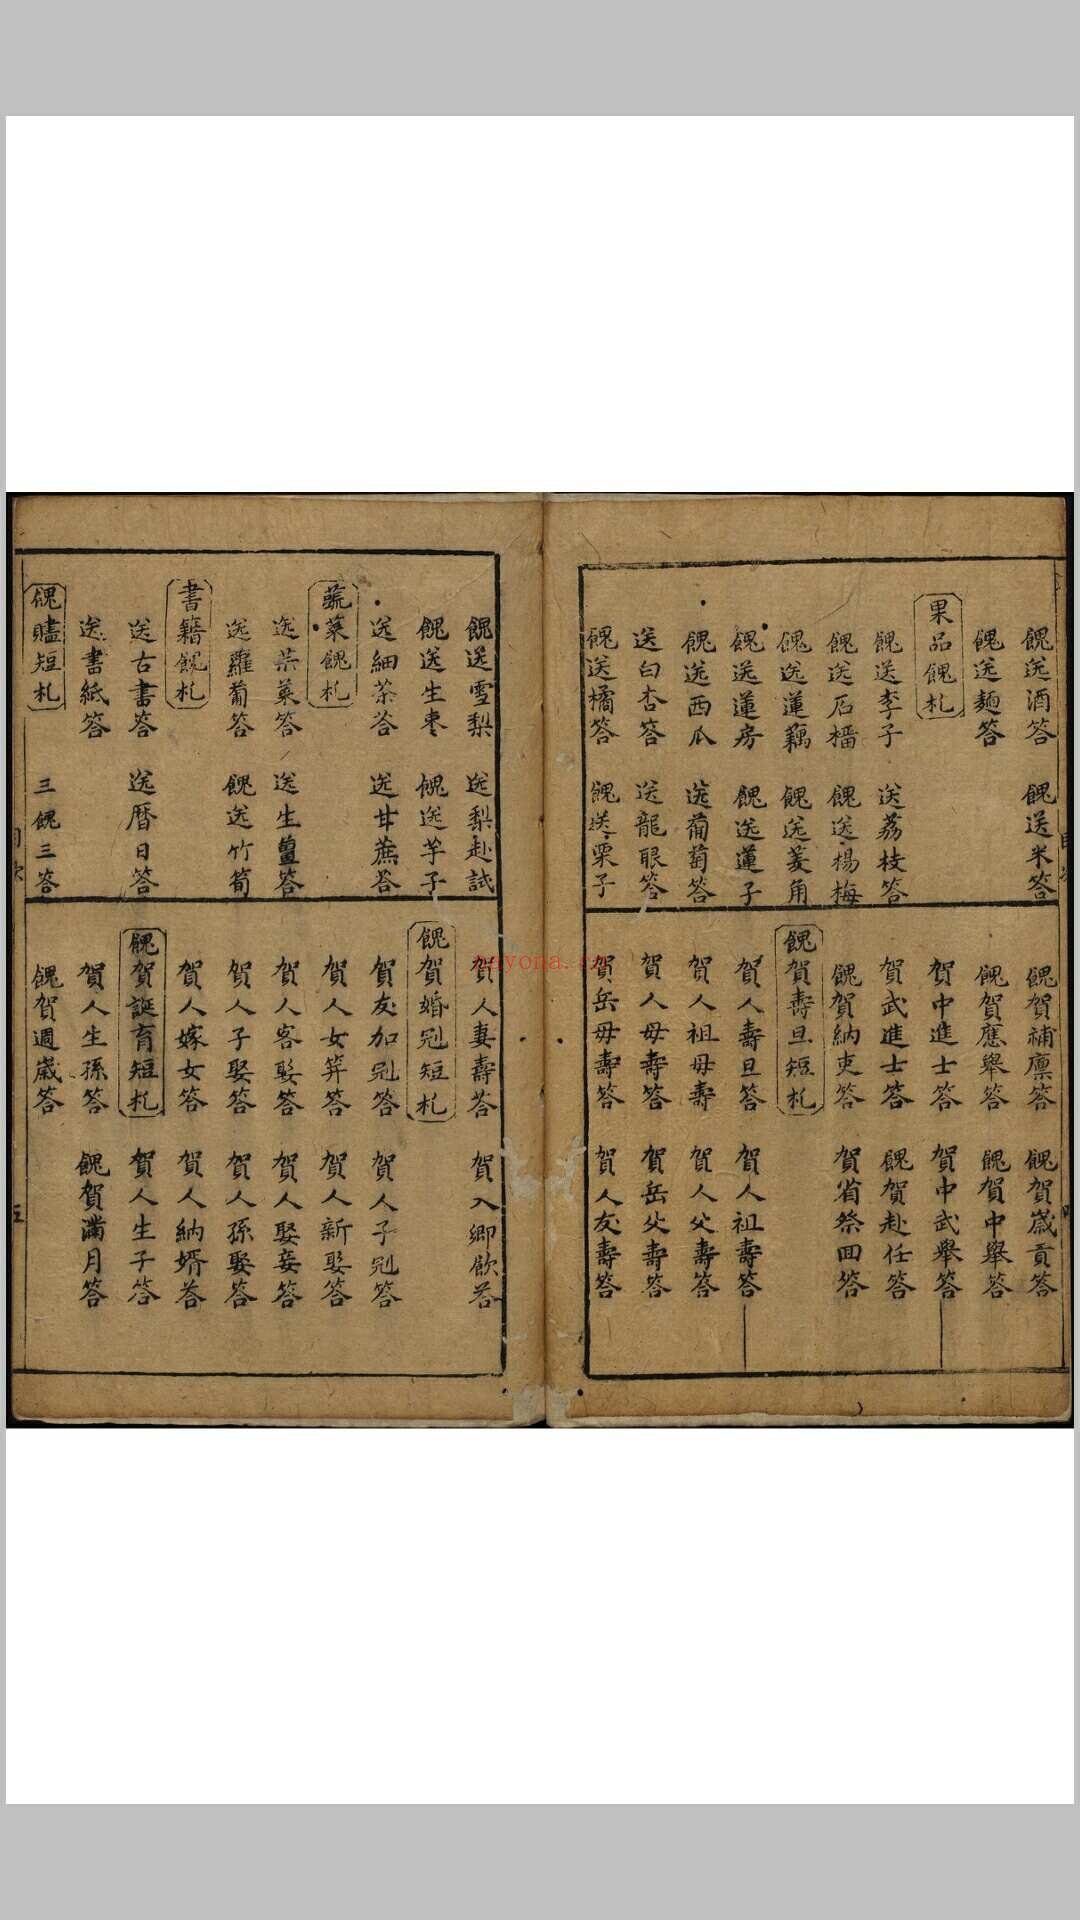 餽送酒答　餽送米答
餽送麵答
果品餽札
餽送李子　送荔枝答
餽送石榴　餽送楊梅
餽送蓮藕　餽送菱角
餽送蓮房　餽送蓮子
餽送西瓜　送葡萄答
送白杏答　送龍眼答
餽送橘答　餽送栗子
餽賀補廪答　餽賀歲貢答
餽賀應舉答　餽賀中舉答
賀中進士答　賀中武舉答
賀武進士答　餽賀赴任答
餽賀納吏答　賀省祭回答
餽賀壽旦短札
賀人壽旦答　賀人祖壽答
賀人祖母壽　賀人父壽答
賀人母壽答　賀岳父壽答
賀岳母壽答　賀人友壽答
餽送雪梨　送梨赴試
餽送生棗　餽送芋子
送細茶答　送甘蔗答
蔬菜餽札
送菜答　送生薑答
送蘿蔔答　餽送竹筍
書籍餽札
送古書答　送暦日答
送書紙答
餽贐短札　三餽三答
賀人妻壽答　賀入鄉飲答
餽賀婚冠短札
賀友加冠答　賀人子冠答
賀人女笄答　賀人新娶答
賀人客娶答　賀人娶妾答
賀人子娶答　賀人孫娶答
賀人嫁女答　賀人納婿答
餽賀誕育短札　賀人生子答
賀人生孫答　餽賀滿月答
餽賀週歲答
目次
五